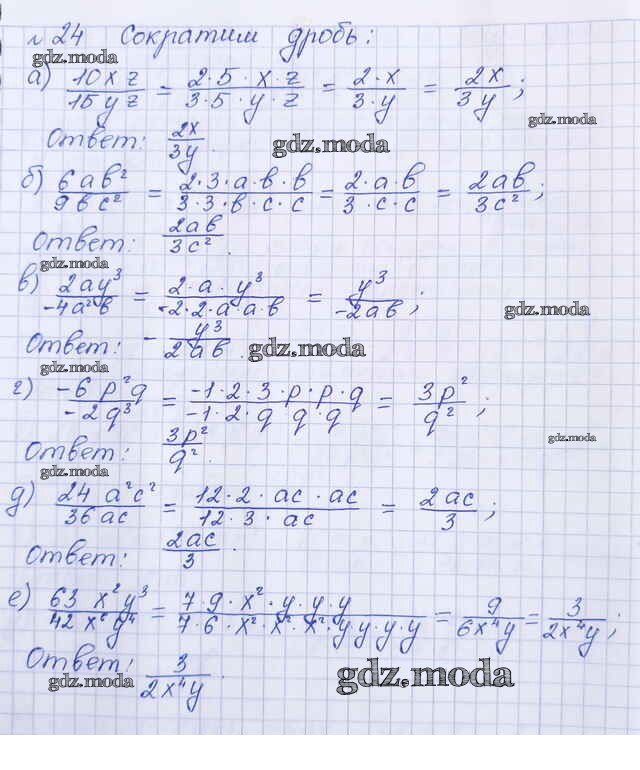 № 24 Сократим дробь:
gdz.moda
а) 10xz/15yz = 2·5·x·z/3·5·y·z = 2·x/3·y = 2x/3y;
gdz.moda
Ответ: 2x/3y.
gdz.moda
б) 6ab²/9bc² = 2·3·a·b·b/3·3·b·c·c = 2·a·b/3·c·c = 2ab/3c²;
Ответ: 2ab/3c².
gdz.moda
в) 2ay³/-4a²b = 2·a·y³/-2·2·a·a·b = y³/-2ab;
gdz.moda
Ответ: - y³/2ab.
gdz.moda
gdz.moda
г) -6p²q/-2q³ = -1·2·3·p·p·q/-1·2·q·q·q = 3p²/q²;
gdz.moda
Ответ: 3p²/q².
gdz.moda
д) 24a²c²/36ac = 12·2·ac·ac/12·3·ac = 2ac/3;
Ответ: 2ac/3.
е) 63x²y³/42x⁶y⁴ = 7·9·x²·y·y·y/7·6·x²·x²·x²·y·y·y·y = 9/6x⁴y = 3/2x⁴y;
Ответ: 3/2x⁴y.
gdz.moda
gdz.moda